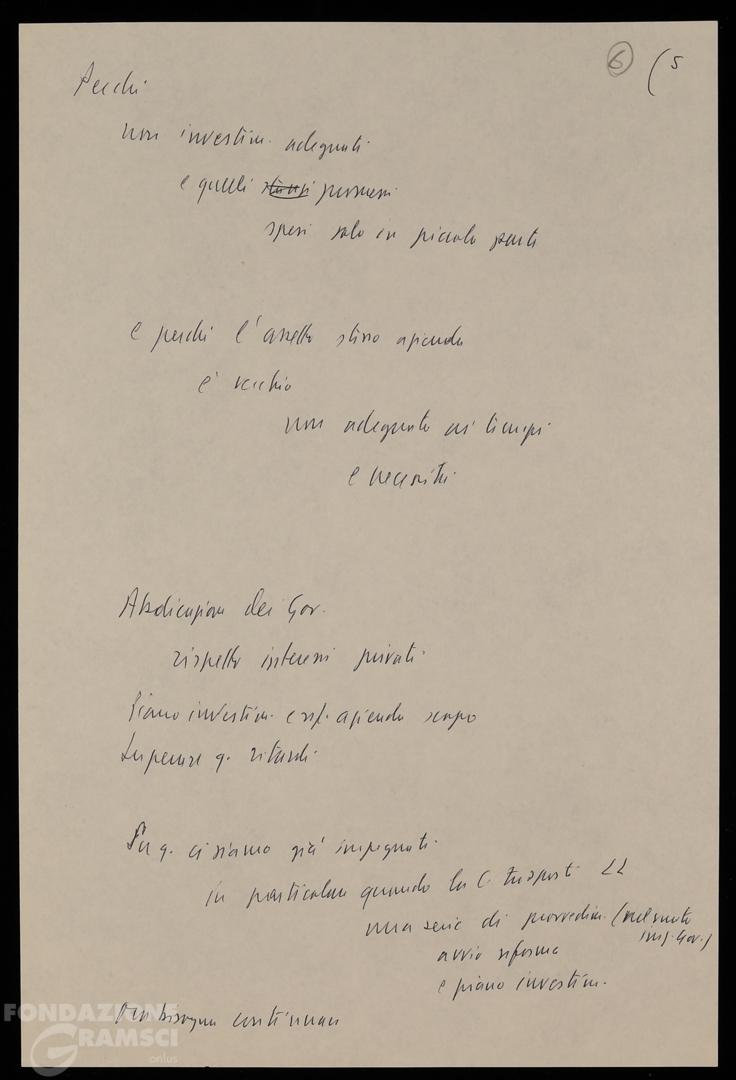 6 (5
Perché
non investim. adeguati
e quelli promessi
spesi solo in piccola parte
e perché l'assetto stesso azienda
è vecchio
non adeguato ai tempi
e necessità
Abdicazione dei Gov.
rispetto interessi privati
Piano investim. e rif. azienda scopo
Superare q. ritardi
Su q. ci siamo già impegnati
in particolare quando la C. Trasporti LL
una serie di provvedim. (nel vuoto
iniz. Gov.)
avvio riforma
e piano investim.
Ora bisogna continuare
FONDAZIONE
GRAMSCI
onlus